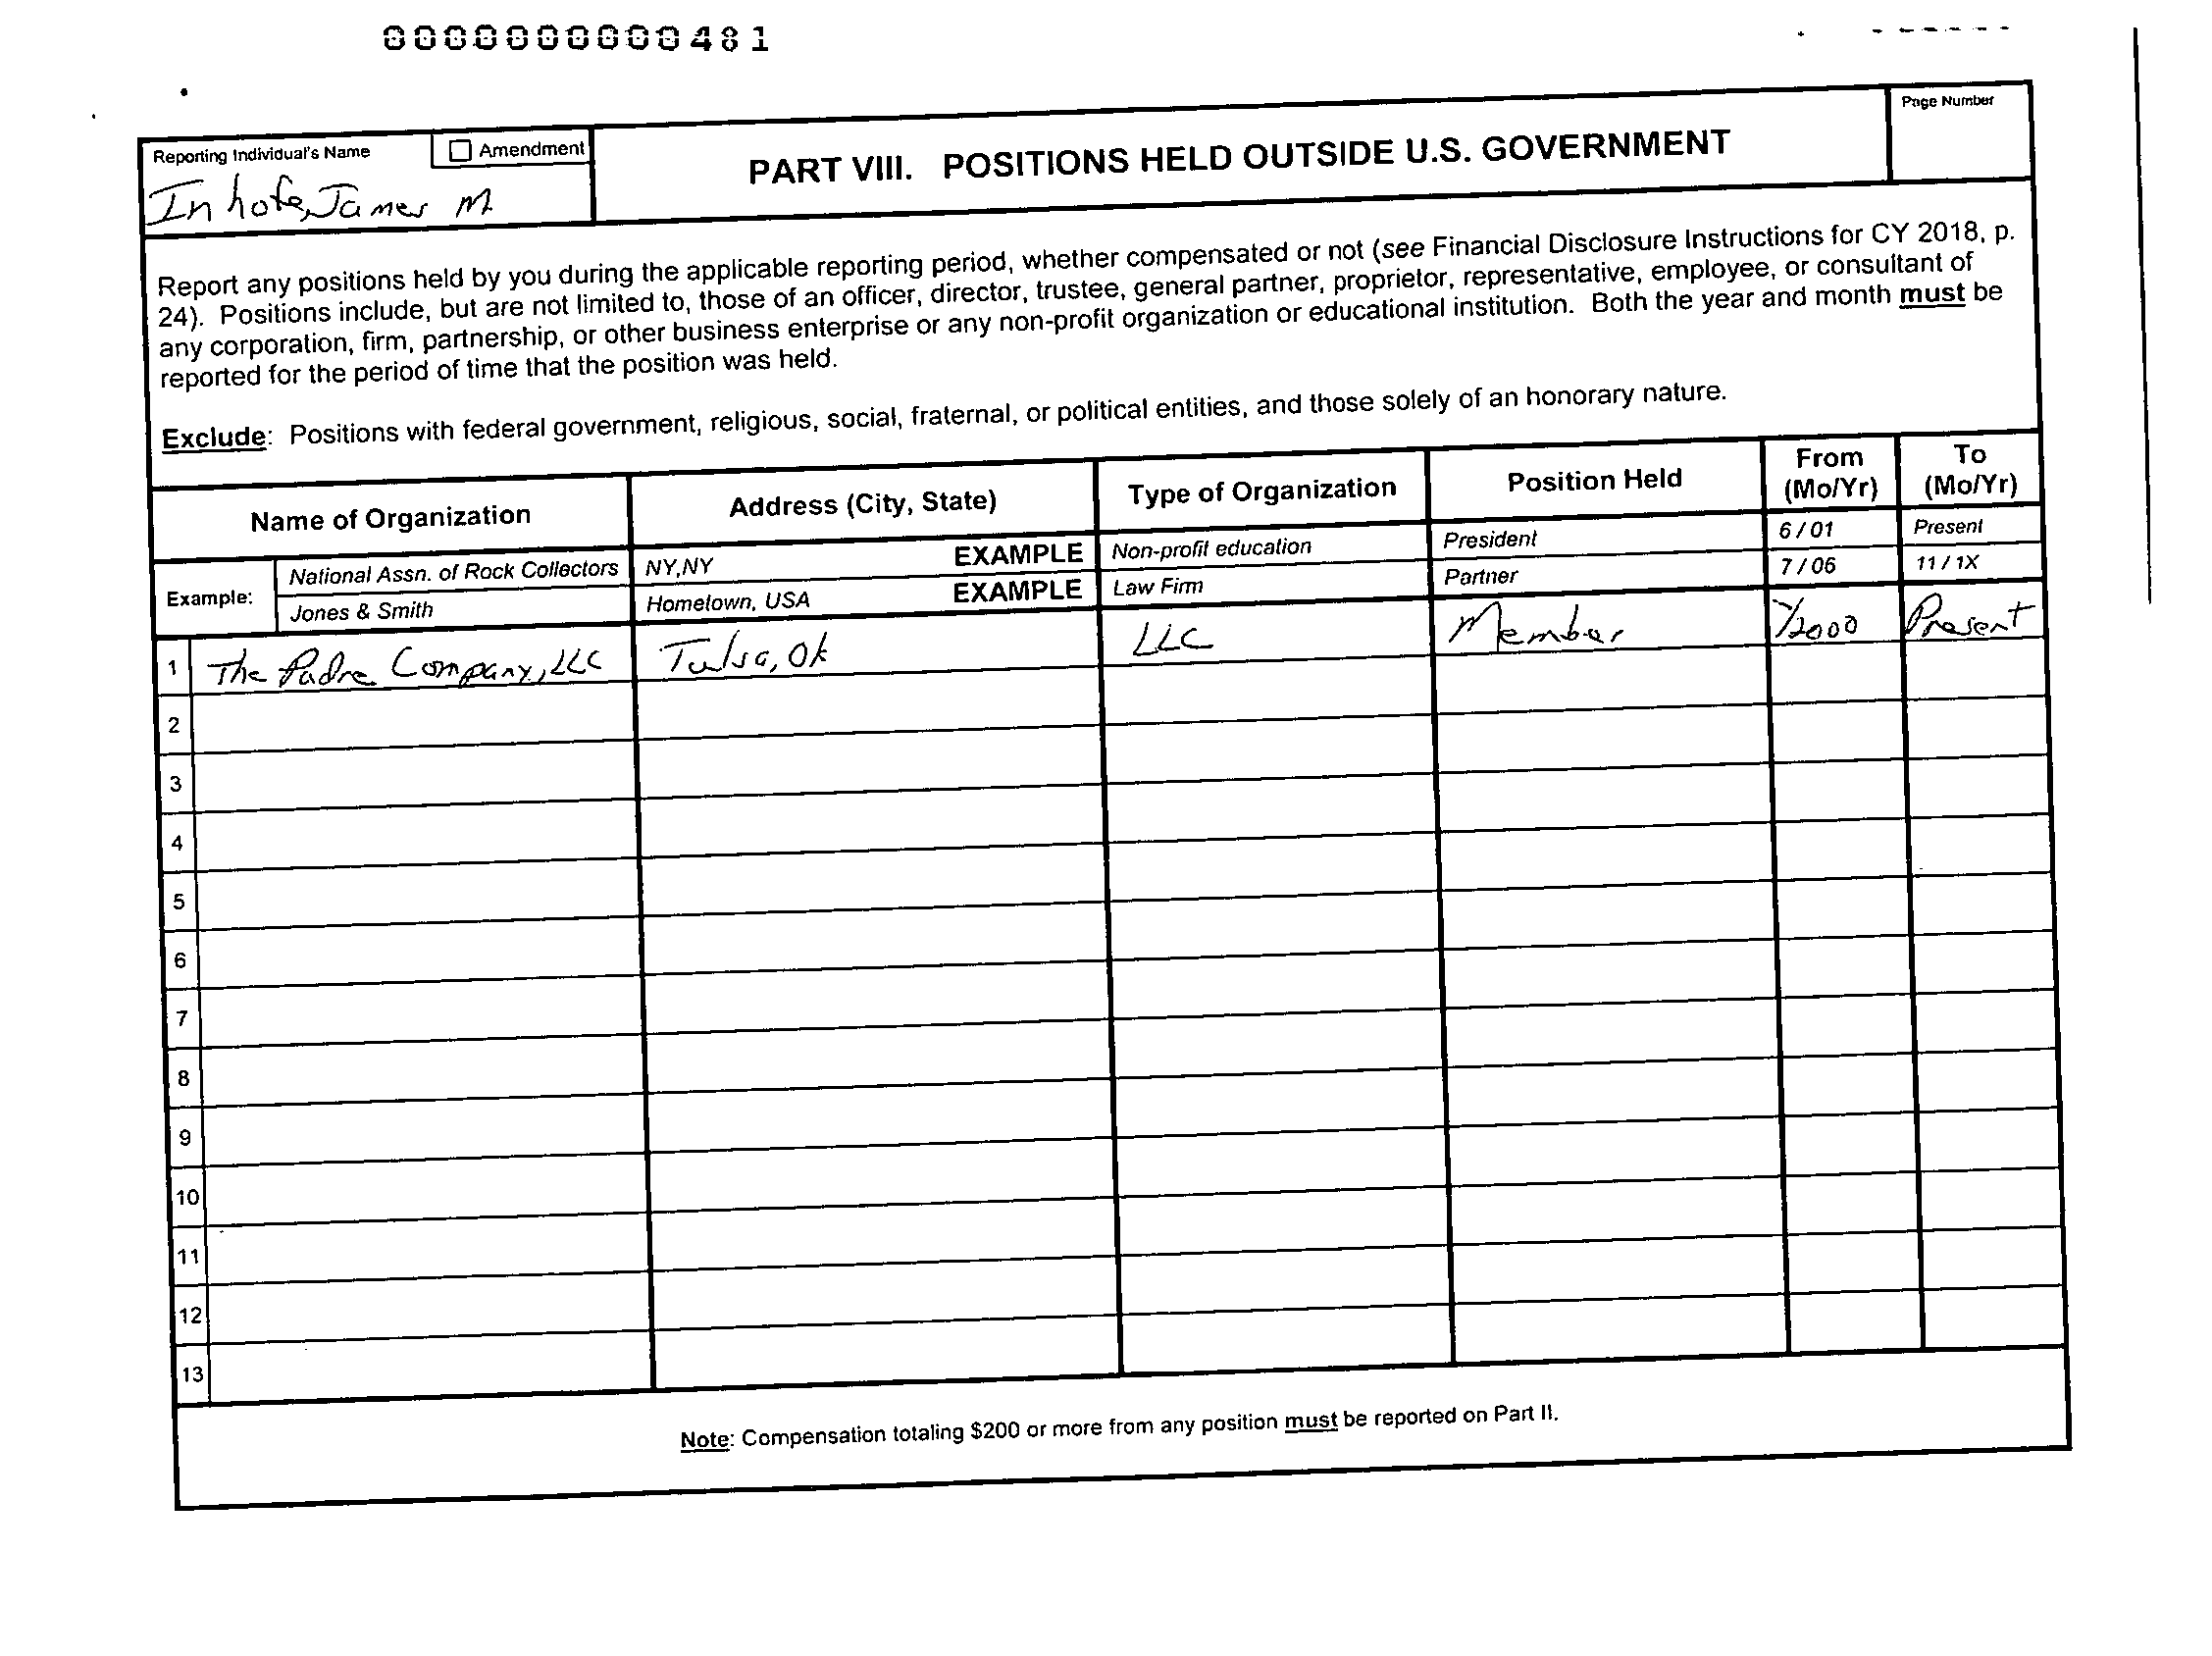 0000000000481
Reporting Individual's Name
Amendment
Inhofe, James M.
PART VIII. POSITIONS HELD OUTSIDE U.S. GOVERNMENT
Page Number
Report any positions held by you during the applicable reporting period, whether compensated or not (see Financial Disclosure Instructions for CY 2018, p.
24). Positions include, but are not limited to, those of an officer, director, trustee, general partner, proprietor, representative, employee, or consultant of
any corporation, firm, partnership, or other business enterprise or any non-profit organization or educational institution. Both the year and month must be
reported for the period of time that the position was held.
Exclude: Positions with federal government, religious, social, fraternal, or political entities, and those solely of an honorary nature.
Name of Organization Address (City, State) Type of Organization Position Held From (Mo/Yr) To (Mo/Yr)
Example: National Assn. of Rock Collectors NY,NY EXAMPLE Non-profit education President 6 / 01 Present
Jones & Smith Hometown, USA EXAMPLE Law Firm Partner 7 / 06 11 / 1X
1 The Padre Company, LLC Tulsa, Ok LLC Member 7/2000 Present
2
3
4
5
6
7
8
9
10
11
12
13
Note: Compensation totaling $200 or more from any position must be reported on Part II.